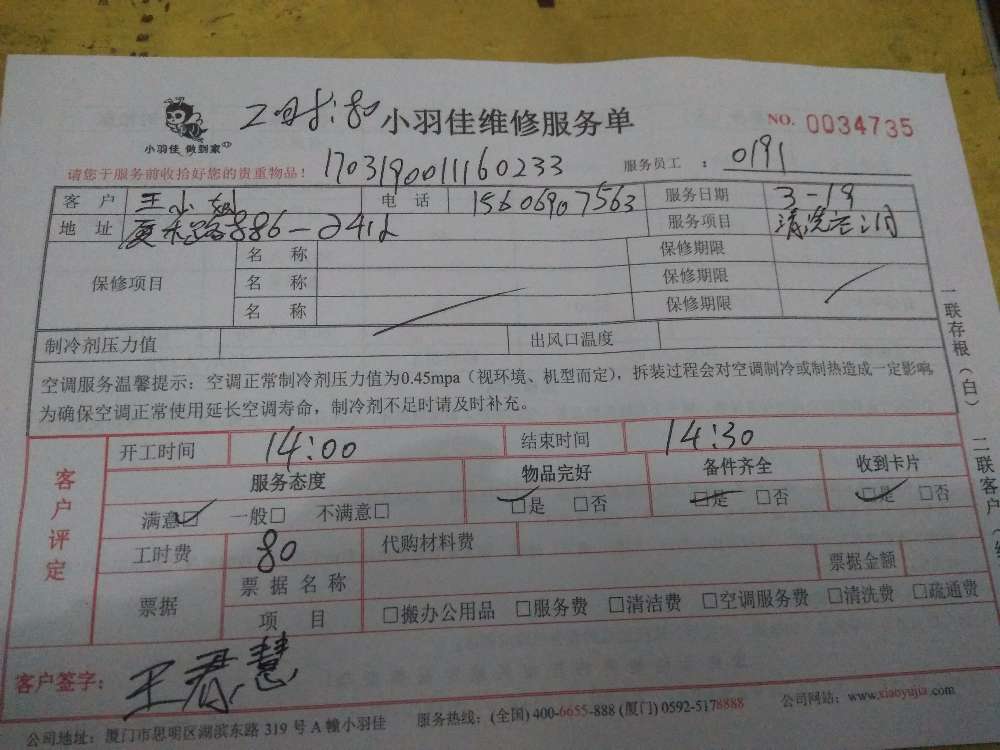 工时:80
小羽佳维修服务单
NO. 0034735
小羽佳 做到家
请您于服务前收拾好您的贵重物品!
170319001160233
服务员工 : 0191
客 户 王小姐 电 话 15606907563 服务日期 3-19
地 址 厦禾路886-241 服务项目 清洗空调
保修项目 名 称 保修期限
名 称 保修期限
名 称 保修期限
制冷剂压力值 出风口温度
空调服务温馨提示:空调正常制冷剂压力值为0.45mpa(视环境、机型而定),拆装过程会对空调制冷或制热造成一定影响
为确保空调正常使用延长空调寿命,制冷剂不足时请及时补充。
一联存根(白) 二联客户
客户评定
开工时间 14:00 结束时间 14:30
服务态度 物品完好 备件齐全 收到卡片
满意□ 一般□ 不满意□ □是 □否 □是 □否 □是 □否
工时费 80 代购材料费
票据 票据名称 票据金额
项 目 □搬办公用品 □服务费 □清洁费 □空调服务费 □清洗费 □疏通费
客户签字: 王君慧
公司地址:厦门市思明区湖滨东路319号A幢小羽佳 服务热线:(全国)400-6655-888(厦门)0592-5178888 公司网站:www.xiaoyujia.com